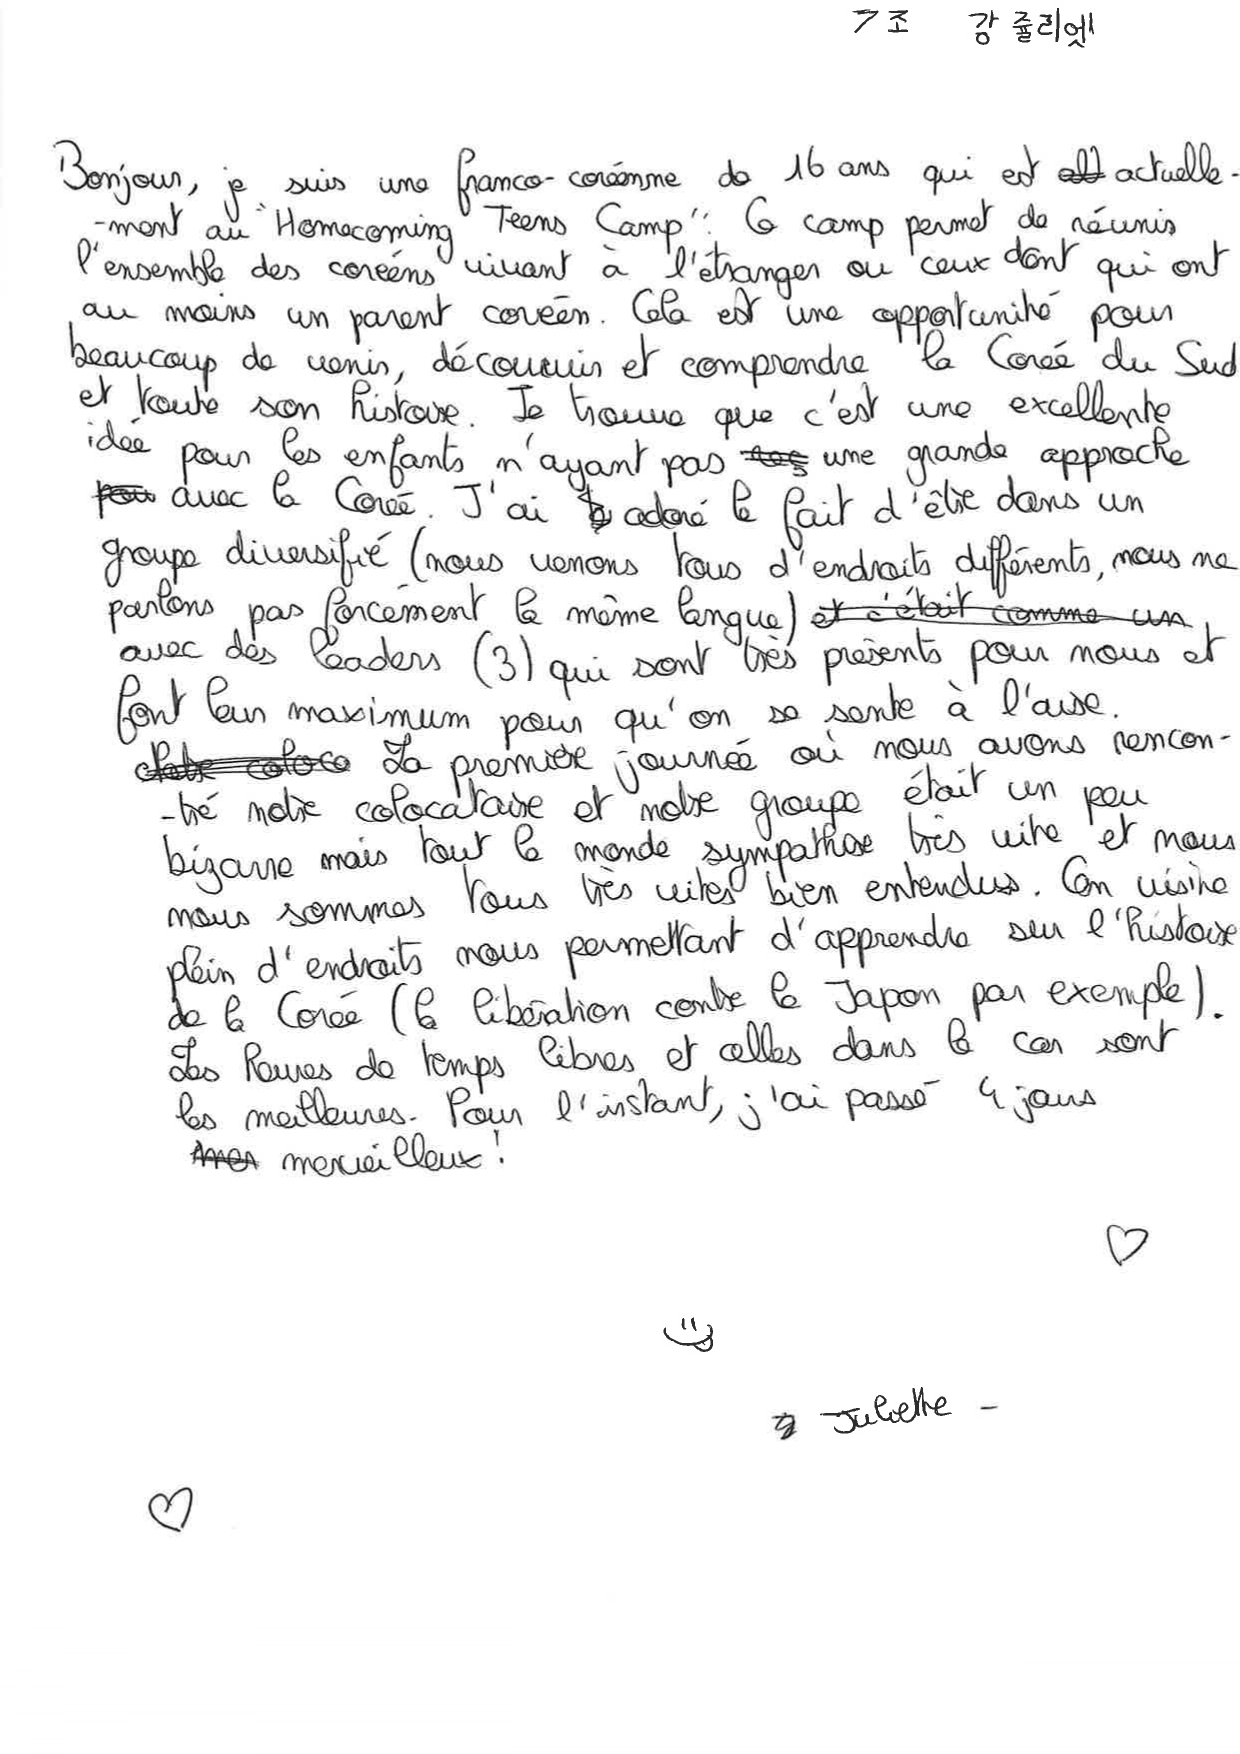 7조 강 쥴리엣
Bonjour, je suis une franco-coréenne de 16 ans qui est actuelle-
-ment au "Homecoming Teens Camp". Ce camp permet de réunir
l'ensemble des coréens vivant à l'étranger ou ceux dont qui ont
au moins un parent coréen. Cela est une opportunité pour
beaucoup de venir, découvrir et comprendre la Corée du Sud
et toute son histoire. Je trouve que c'est une excellente
idée pour les enfants n'ayant pas une grande approche
avec la Corée. J'ai adoré le fait d'être dans un
groupe diversifié (nous venons tous d'endroits différents, nous ne
parlons pas forcément la même langue) et c'était comme un
avec des leaders (3) qui sont très présents pour nous et
font leur maximum pour qu'on se sente à l'aise.
La première journée où nous avons rencon-
-tré notre colocataire et notre groupe était un peu
bizarre mais tout le monde sympathise très vite et nous
nous sommes tous très vites bien entendus. On visite
plein d'endroits nous permettant d'apprendre sur l'histoire
de la Corée (la libération contre le Japon par exemple).
Les heures de temps libres et celles dans le car sont
les meilleures. Pour l'instant, j'ai passé 4 jours
merveilleux!
Juliette -